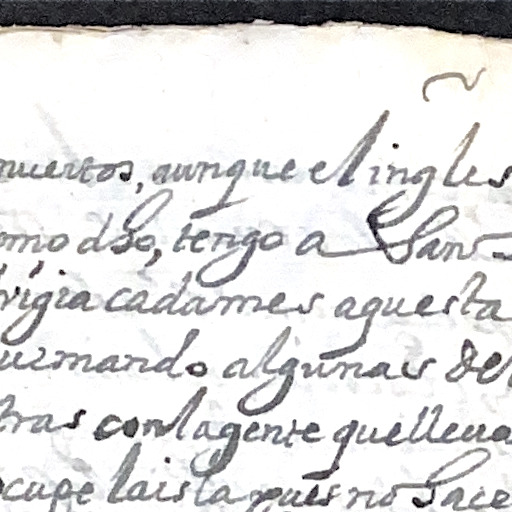 muertos, aunque el ingles
omo dho, tengo a San
rigia cada mes aguesta
uemando algunas del
tras con la gente que lleua
ocupe la isla pues no hace